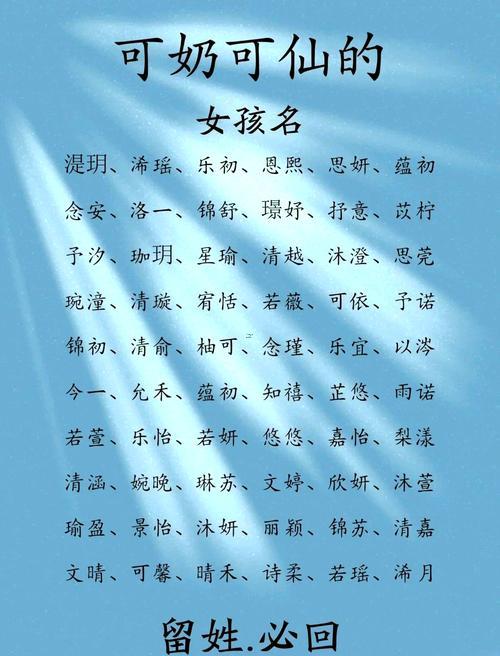 可奶可仙的
女孩名
湜玥、浠瑶、乐初、恩熙、思妍、蕴初
念安、洛一、锦舒、璟妤、抒意、苡柠
予汐、珈玥、星瑜、清越、沐澄、思莞
琬潼、清璇、宥恬、若薇、可依、予诺
锦初、清俞、柚可、念瑾、乐宜、以涔
今一、允禾、蕴初、知禧、芷悠、雨诺
若萱、乐怡、若妍、悠悠、嘉怡、梨漾
清涵、婉晚、琳苏、文婷、欣妍、沐萱
瑜盈、景怡、沐妍、丽颖、锦苏、清嘉
文晴、可馨、晴禾、诗柔、若瑶、浠月
留姓.必回